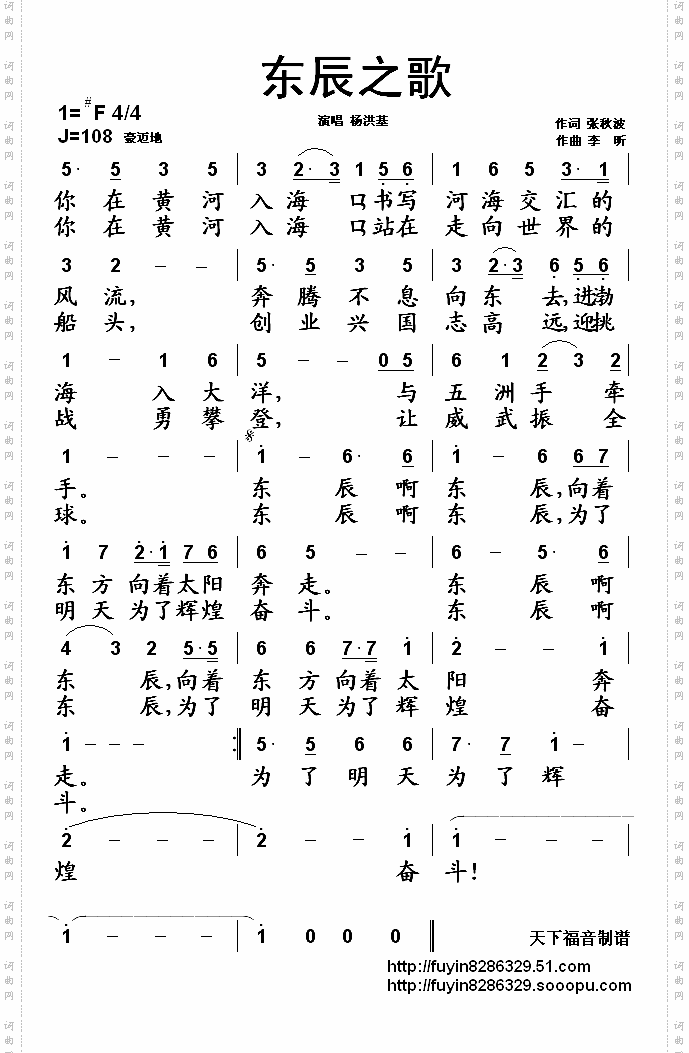 东辰之歌
1=#F 4/4
演唱 杨洪基
作词 张秋波
J=108 豪迈地
作曲 李 昕
5· 5 3 5 | 3 2·3 1 5 6 | 1 6 5 3·1 |
你在黄河入海口书写河海交汇的
你在黄河入海口站在走向世界的
3 2 – – | 5· 5 3 5 | 3 2·3 6 5 6 |
风流,奔腾不息向东去,进渤
船头,创业兴国志高远,迎挑
1 – 1 6 | 5 – – 0 5 | 6 1 2 3 2 |
海入大洋,与五洲手牵
战勇攀登,让威武振全
1 – – – | 1 – 6· 6 | 1 – 6 6 7 |
手。东辰啊东辰,向着
球。东辰啊东辰,为了
1 7 2·1 7 6 | 6 5 – – | 6 – 5· 6 |
东方向着太阳奔走。东辰啊
明天为了辉煌奋斗。东辰啊
4 3 2 5·5 | 6 6 7·7 1 | 2 – – 1 |
东辰,向着东方向着太阳奔
东辰,为了明天为了辉煌奋
1 – – – :‖ 5· 5 6 6 | 7· 7 1 – |
走。为了明天为了辉
斗。
2 – – – | 2 – – 1 | 1 – – – |
煌奋斗!
1 – – – | 1 0 0 0 ‖
天下福音制谱
http://fuyin8286329.51.com
http://fuyin8286329.sooopu.com
词曲网